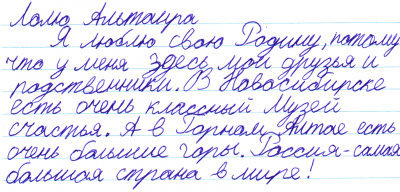 Лолю Альтаира
Я люблю свою Родину, потому
что у меня здесь мои друзья и
родственники. В Новосибирске
есть очень классный Музей
счастья. А в Горном Алтае есть
очень большие горы. Россия-самая
большая страна в мире!